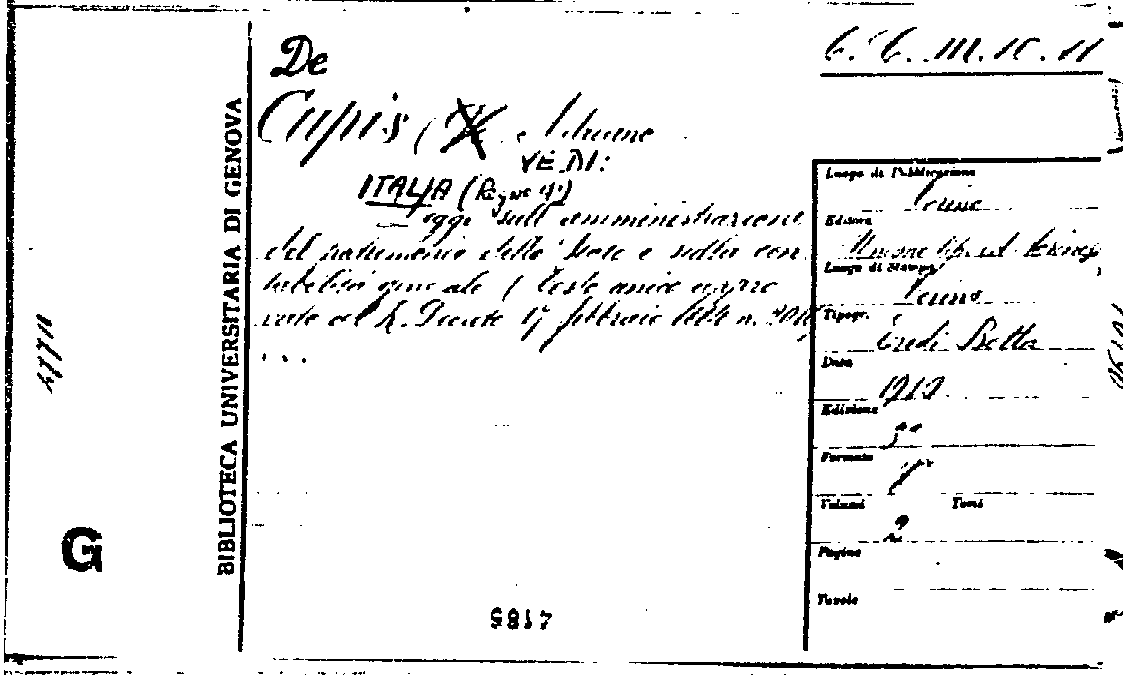 De
Cupis ( Adriano
VEDI:
ITALIA (Regno d')
Leggi sull' amministrazione
del patrimonio dello Stato e sulla con
tabilità generale ( testo unico appro
vato col R. Decreto 17 febbraio 1884 n.
...
BIBLIOTECA UNIVERSITARIA DI GENOVA
G
4185
Luogo di Pubblicazione
Torino
Editore
Unione tip. ed.
Luogo di Stampa
Torino
Tipogr.
Eredi Botta
Data
Edizione
Formato
8°
Volumi Tomi
2
Pagine
Tavole